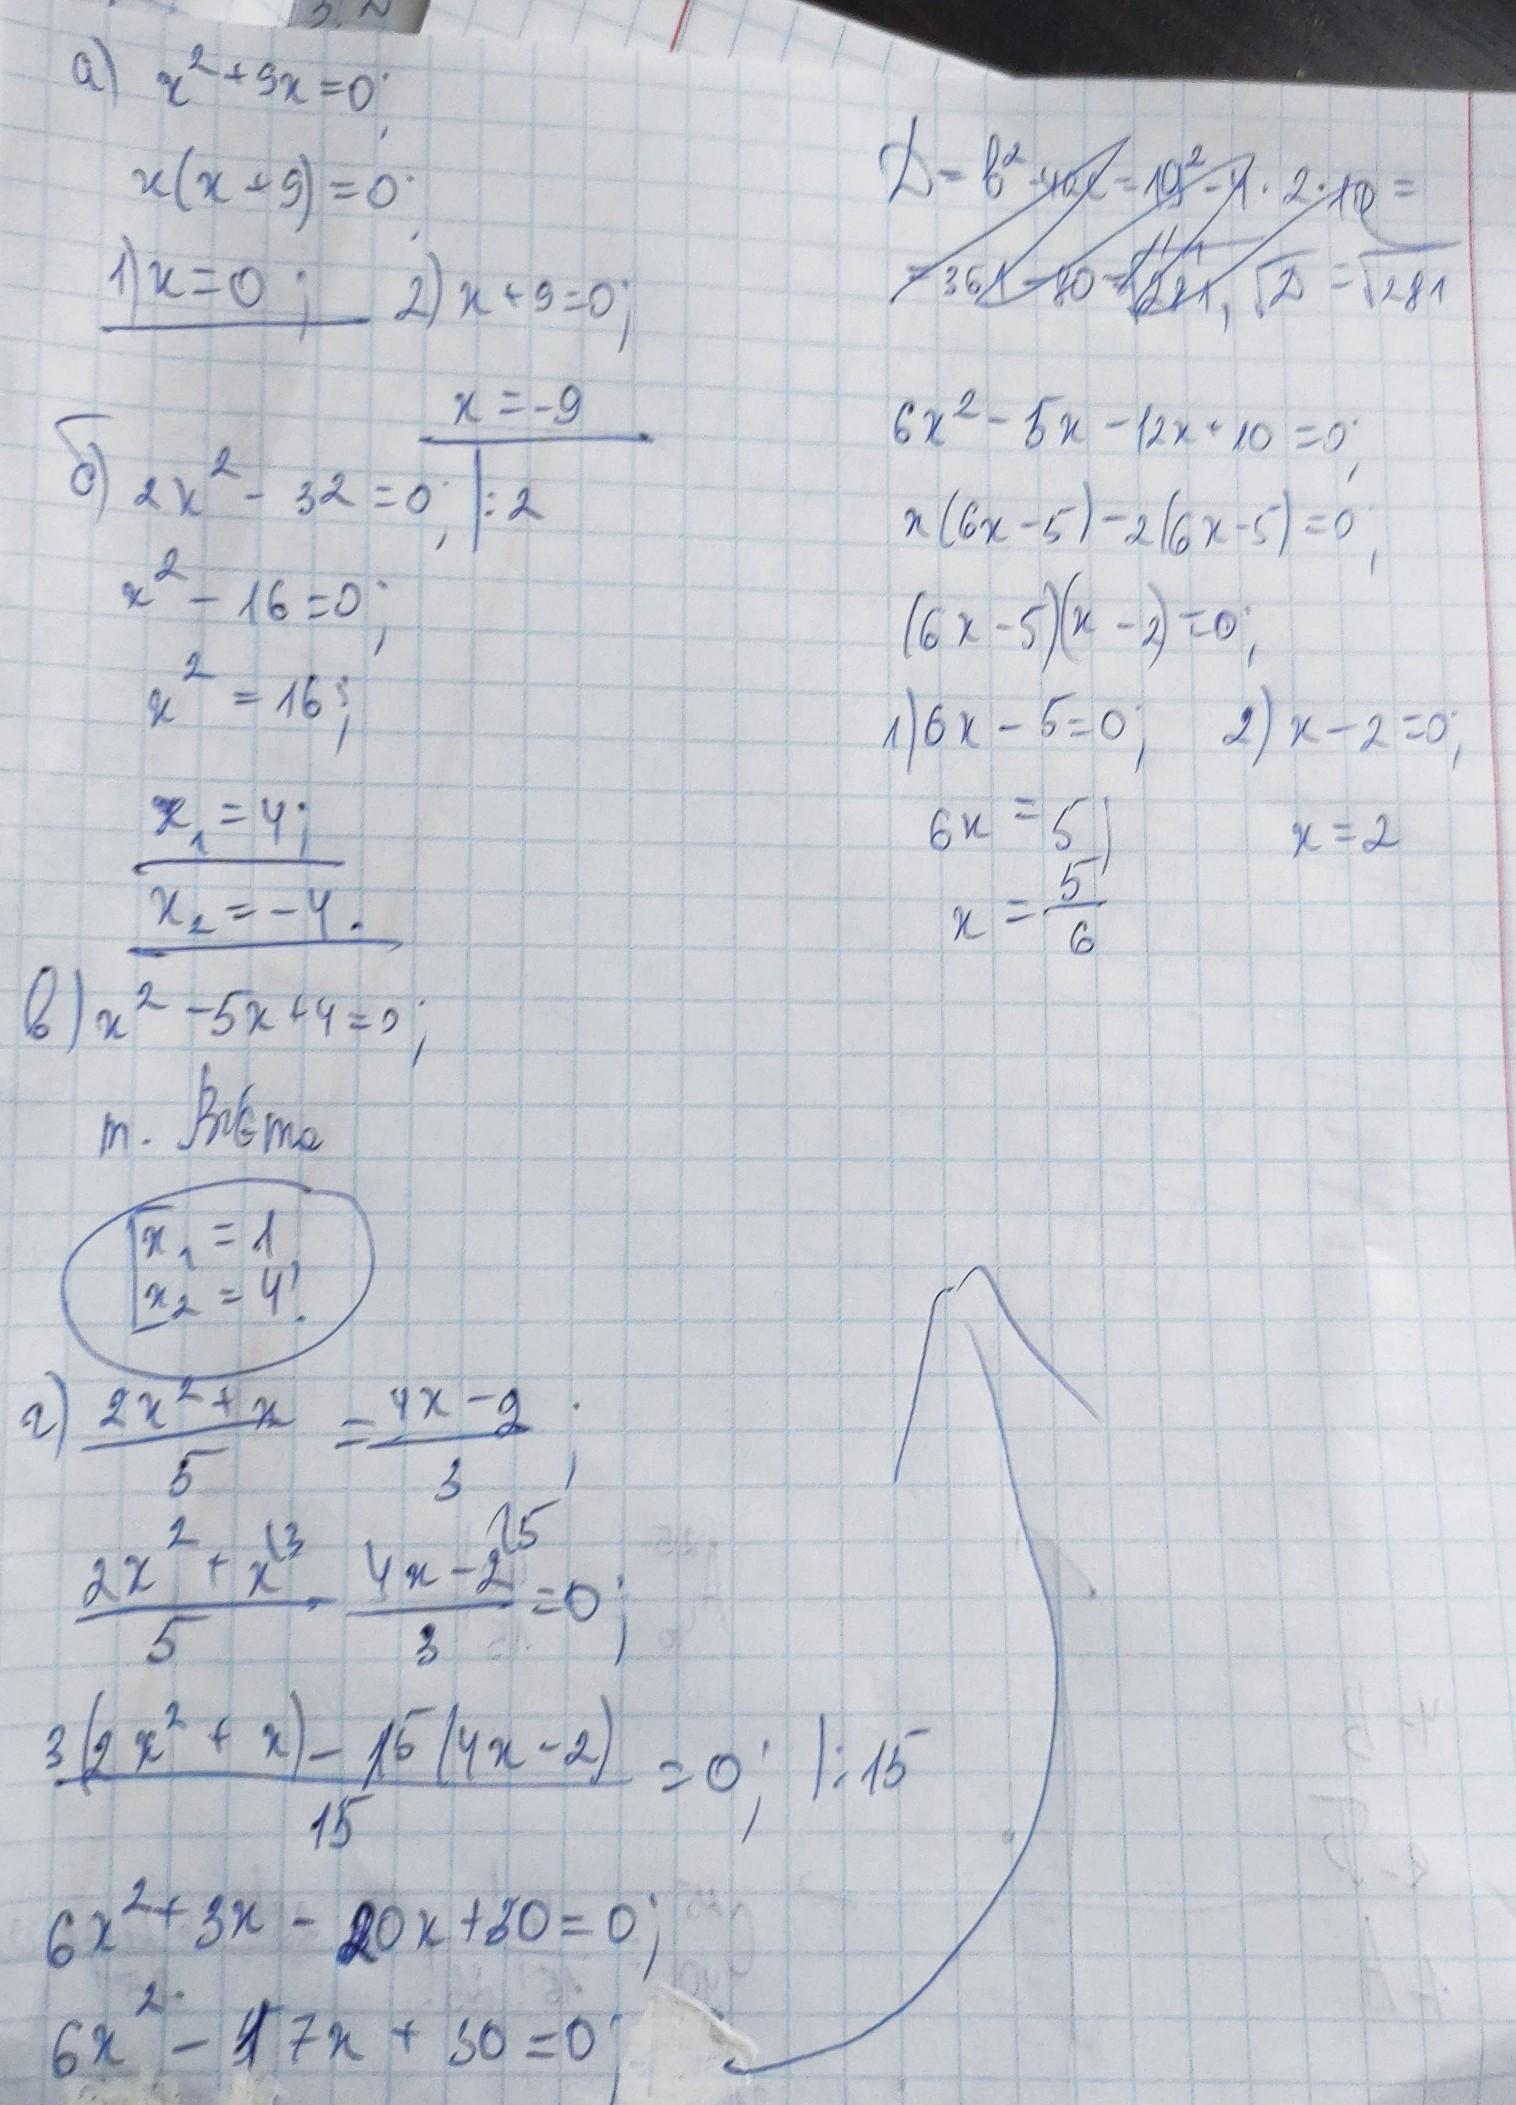 а) x² + 9x = 0;
x(x + 9) = 0;
1) x = 0; 2) x + 9 = 0;
x = -9
б) 2x² - 32 = 0; |:2
x² - 16 = 0;
x² = 16;
x₁ = 4;
x₂ = -4.
в) x² - 5x + 4 = 0;
т. Виета
[x₁ = 1
x₂ = 4.
г) (2x² + x)/5 = (4x - 2)/3;
(2x² + x)/5 ⁽³ - (4x - 2)/3 ⁽⁵ = 0;
(3(2x² + x) - 15(4x - 2))/15 = 0; |:15
6x² + 3x - 20x + 30 = 0;
6x² - 17x + 30 = 0;
6x² - 5x - 12x + 10 = 0;
x(6x - 5) - 2(6x - 5) = 0;
(6x - 5)(x - 2) = 0;
1) 6x - 5 = 0; 2) x - 2 = 0;
6x = 5; x = 2
x = 5/6